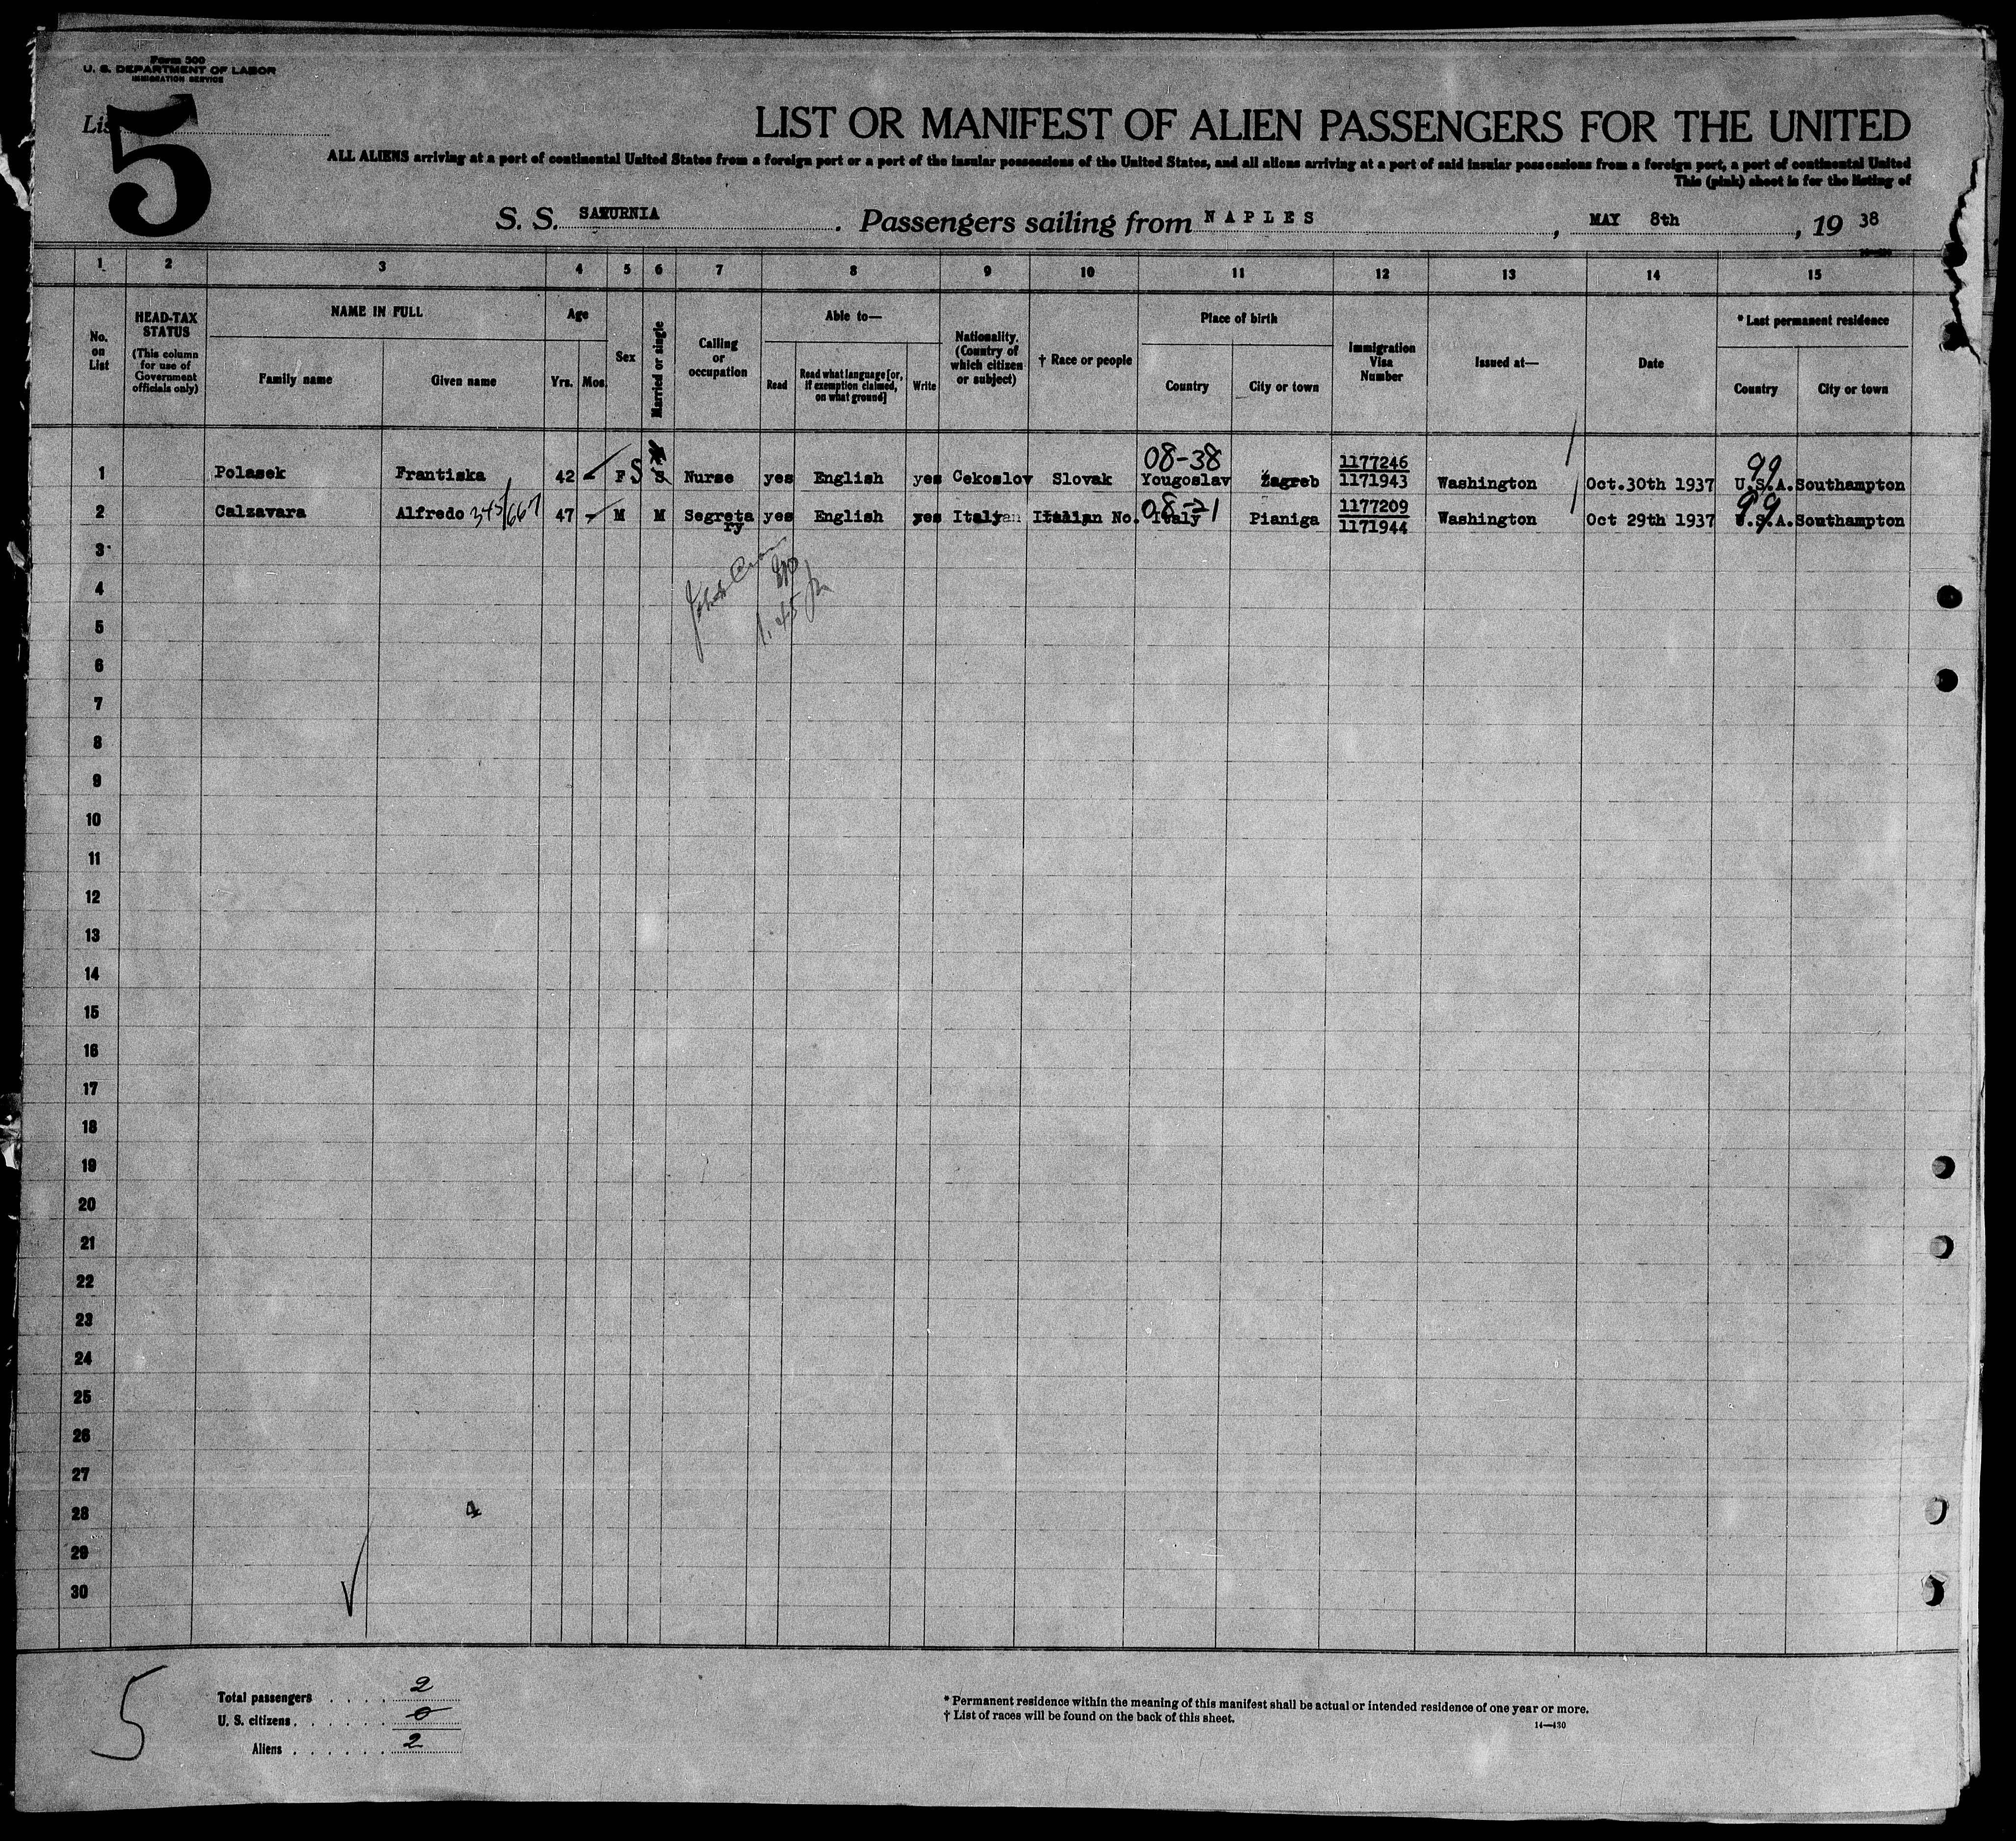 Form 500
U. S. DEPARTMENT OF LABOR
IMMIGRATION SERVICE
5
LIST OR MANIFEST OF ALIEN PASSENGERS FOR THE UNITED
ALL ALIENS arriving at a port of continental United States from a foreign port or a port of the insular possessions of the United States, and all aliens arriving at a port of said insular possessions from a foreign port, a port of continental United
This (pink) sheet is for the listing of
S. S. SATURNIA. Passengers sailing from NAPLES, MAY 8th, 19 38
1 2 3 4 5 6 7 8 9 10 11 12 13 14 15
No. on List
HEAD-TAX STATUS
(This column for use of Government officials only)
NAME IN FULL
Family name
Given name
Age
Yrs.
Mos.
Sex
Married or single
Calling or occupation
Able to—
Read
Read what language [or, if exemption claimed, on what ground]
Write
Nationality. (Country of which citizen or subject)
† Race or people
Place of birth
Country
City or town
Immigration Visa Number
Issued at—
Date
* Last permanent residence
Country
City or town
08-38 1177246 99
1 Polasek Frantiska 42 F S S Nurse yes English yes Cekoslov Slovak Yougoslav Zagreb 1171943 Washington Oct.30th 1937 U.S.A. Southampton
08-21 1177209 99
2 Calzavara Alfredo 345/667 47 M M Segreta yes English yes Italyan Italian No. Italy Pianiga 1171944 Washington Oct 29th 1937 U.S.A. Southampton
ry
3
4
5
6
7
8
9
10
11
12
13
14
15
16
17
18
19
20
21
22
23
24
25
26
27
28 4
29
30
5
Total passengers . . . . 2
U. S. citizens . . . . . . 0
Aliens . . . . . . 2
* Permanent residence within the meaning of this manifest shall be actual or intended residence of one year or more.
† List of races will be found on the back of this sheet.
14—430